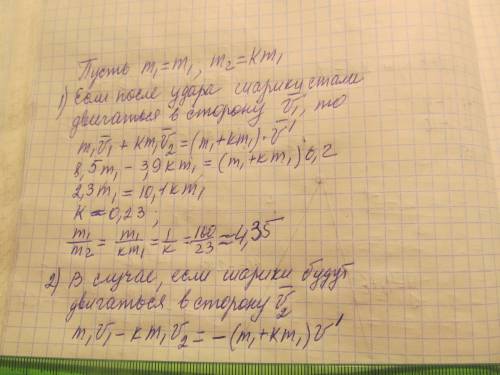 Пусть m₁=m₁, m₂=km₁
1) Если после удара шарики стали
двигаться в сторону v̅₁, то
m₁v̅₁ + km₁v̅₂ = (m₁+km₁)·v̅'
8,5m₁ - 3,9km₁ = (m₁+km₁)6,2
2,3m₁ = 10,1km₁
k≈0,23;
m₁/m₂ = m₁/km₁ = 1/k = 100/23 ≈ 4,35
2) В случае, если шарики будут
двигаться в сторону v̅₂
m₁v̅₁ - km₁v̅₂ = -(m₁+km₁)v̅'